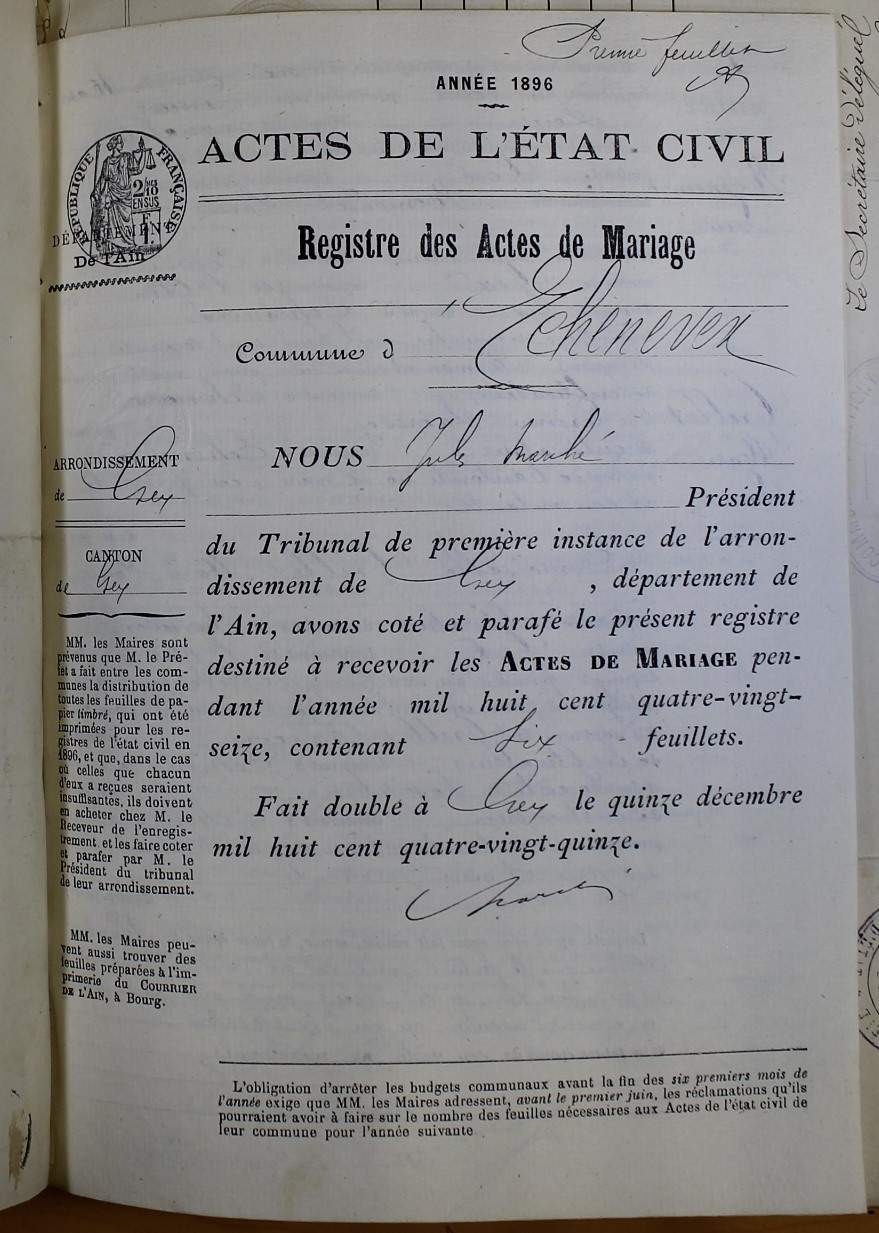 Premier feuillet
ANNÉE 1896
ACTES DE L'ÉTAT CIVIL
RÉPUBLIQUE FRANÇAISE
2/10
EN SUS
DÉPARTEMENT
De l'Ain
Registre des Actes de Mariage
Commune d'Echenevex
ARRONDISSEMENT
de Gex
CANTON
de Gex
MM. les Maires sont
prévenus que M. le Pré-
fet a fait entre les com-
munes la distribution de
toutes les feuilles de pa-
pier timbré, qui ont été
imprimées pour les re-
gistres de l'état civil en
1896, et que, dans le cas
où celles que chacun
d'eux a reçues seraient
insuffisantes, ils doivent
en acheter chez M. le
Receveur de l'enregis-
trement et les faire coter
et parafer par M. le
Président du tribunal
de leur arrondissement.
MM. les Maires peu-
vent aussi trouver des
feuilles préparées à l'im-
primerie du COURRIER
DE L'AIN, à Bourg.
NOUS Jules Marché
Président
du Tribunal de première instance de l'arron-
dissement de Gex, département de
l'Ain, avons coté et parafé le présent registre
destiné à recevoir les ACTES DE MARIAGE pen-
dant l'année mil huit cent quatre-vingt-
seize, contenant Six feuillets.
Fait double à Gex le quinze décembre
mil huit cent quatre-vingt-quinze.
Marché
L'obligation d'arrêter les budgets communaux avant la fin des six premiers mois de
l'année exige que MM. les Maires adressent, avant le premier juin, les réclamations qu'ils
pourraient avoir à faire sur le nombre des feuilles nécessaires aux Actes de l'état civil de
leur commune pour l'année suivante
Le Secrétaire délégué